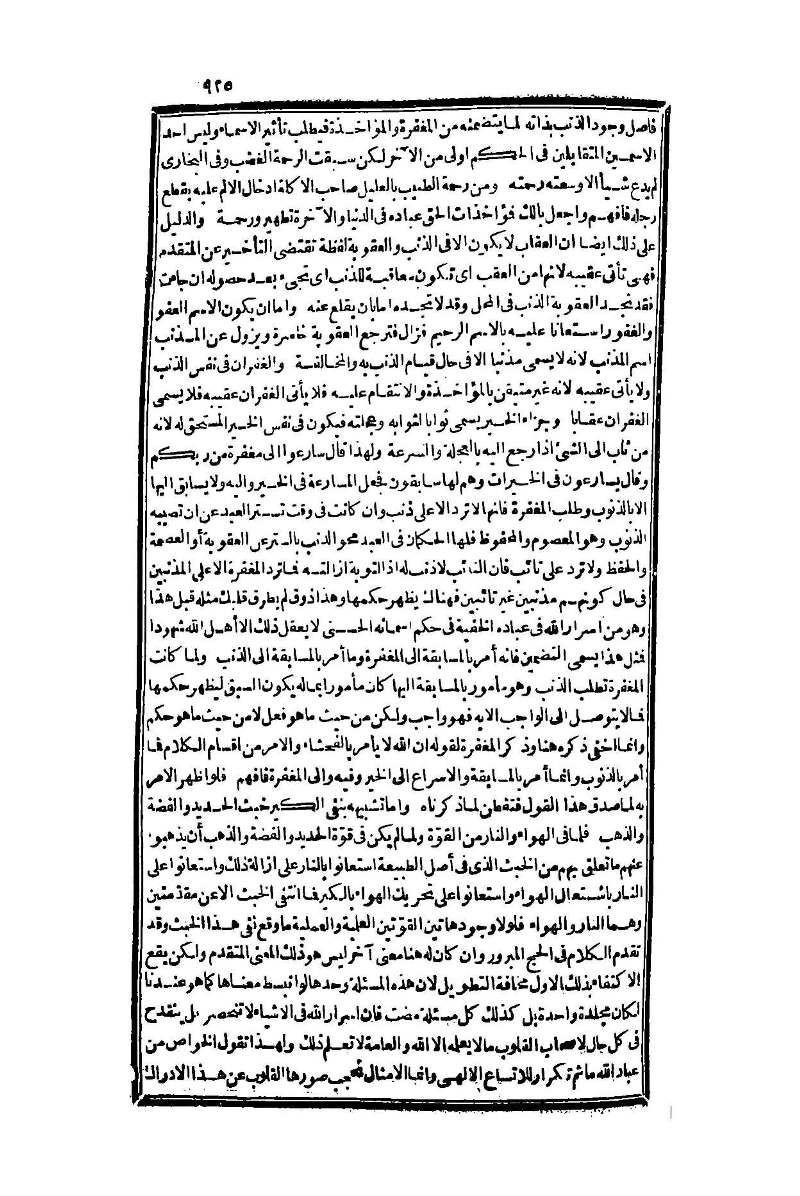 ٩٢٥
فاصل وجود الذنب بذاته لما يتضمنه من المغفرة والمؤاخذة فيطلب تأثير الاسماء وليس احد
الاسمين المتقابلين فى الحكم اولى من الآخر لكن سبقت الرحمة الغضب وفى البخارى
لم يدع شيأ الا وسعته رحمته ومن رحمة الطبيب بالعليل صاحب الاكلة ادخال الالم عليه بقطع
رجله فافهم واجعل بالك فمؤاخذات الحق عباده فى الدنيا والآخرة تطهير ورحمة والدليل
على ذلك ايضا ان العقاب لا يكون الا فى الذنب والعقوبة لفظة تقتضى التأخير عن المتقدم
فهى تأتى عقيبه لانها من العقب اى تكون معاقبة للذنب اى تجىء بعد حصوله ان جاءت
فقد تجد العقوبة الذنب فى المحل وقد لا تجده اما بان يقلع عنه واما ان يكون الاسم العفو
والغفور استعانا عليه بالاسم الرحيم فزال فترجع العقوبة خاسرة ويزول عن المذنب
اسم المذنب لانه لا يسمى مذنبا الا فى حال قيام الذنب به والمخالفة والغفران فى نفس الذنب
ولا يأتى عقيبه لانه غير متيقن بالمؤاخذة والانتقام عليه فلا يأتى الغفران عقيبه فلا يسمى
الغفران عقابا وجزاء الخير يسمى ثوابا لثوابه وعجلته فيكون فى نفس الخير المستحق له لانه
من ثاب الى الشئ اذا رجع اليه بالعجلة والسرعة ولهذا قال سارعوا الى مغفرة من ربكم
وقال يسارعون فى الخيرات وهم لها سابقون فجعل المسارعة فى الخير واليه ولا يسابق اليها
الا بالذنوب وطلب المغفرة فانها لا ترد الا على ذنب وان كانت فى وقت تستر العبد عن ان تصيبه
الذنوب وهو المعصوم والمحفوظ فلها الحكمان فى العبد محو الذنب بالستر عن العقوبة أو العصمة
والحفظ ولا ترد على تائب فان التائب لا ذنب له اذ التوبة ازالته فما ترد المغفرة الا على المذنبين
فى حال كونهم مذنبين غير تائبين فهنالك يظهر حكمها وهذا ذوق لم يطرق قلبك مثله قبل هذا
وهو من اسرار الله فى عباده الخفية فى حكم اسمائه الحسنى لا يعقل ذلك الا أهل الله شهودا
فمثل هذا يسمى التضمين فانه أمر بالمسابقة الى المغفرة وما أمر بالمسابقة الى الذنب ولما كانت
المغفرة تطلب الذنب وهو مأمور بالمسابقة اليها كان مأمورا بما له يكون السبق ليظهر حكمها
فما لا يتوصل الى الواجب الا به فهو واجب ولكن من حيث ما هو فعل لا من حيث ما هو حكم
وانما اخفى ذكره هنا وذكر المغفرة لقوله ان الله لا يأمر بالفحشاء والامر من اقسام الكلام فما
أمر بالذنوب وانما أمر بالمسابقة والاسراع الى الخير وفيه والى المغفرة فافهم فلو اظهر الامر
به لما صدق هذا القول فتفطن لما ذكرناه واما تشبيهه بنفى الكير خبث الحديد والفضة
والذهب فلما فى الهواء والنار من القوة ولما لم يكن فى قوة الحديد والفضة والذهب أن يذهبو
عنهم ما تعلق بهم من الخبث الذى فى أصل الطبيعة استعانوا بالنار على ازالة ذلك واستعانوا على
النار باشتعال الهواء واستعانوا على تحريك الهواء بالكير فما انتفى الخبث الا عن مقدمتين
وهما النار والهواء فلولا وجود هاتين القوتين العلمية والعملية ما وقع نفى هذا الخبث وقد
تقدم الكلام فى الحج المبرور وان كان له هنا معنى آخر ليس هو ذلك المعنى المتقدم ولكن يقع
الاكتفاء بذلك الاول مخافة التطويل لان هذه المسئلة وحدها لو انبسط معناها كما هو عندنا
لكان مجلدة واحدة بل كذلك كل مسئلة مضت فان اسرار الله فى الاشياء لا تنحصر بل ينقدح
فى كل حال لاصحاب القلوب ما لا يعلمه الا الله والعامة لا تعلم ذلك ولهذا تقول الخواص من
عباد الله ما ثم تكرار للاتساع الالهى وانما الامثال تحجب صورها القلوب عن هذا الادراك